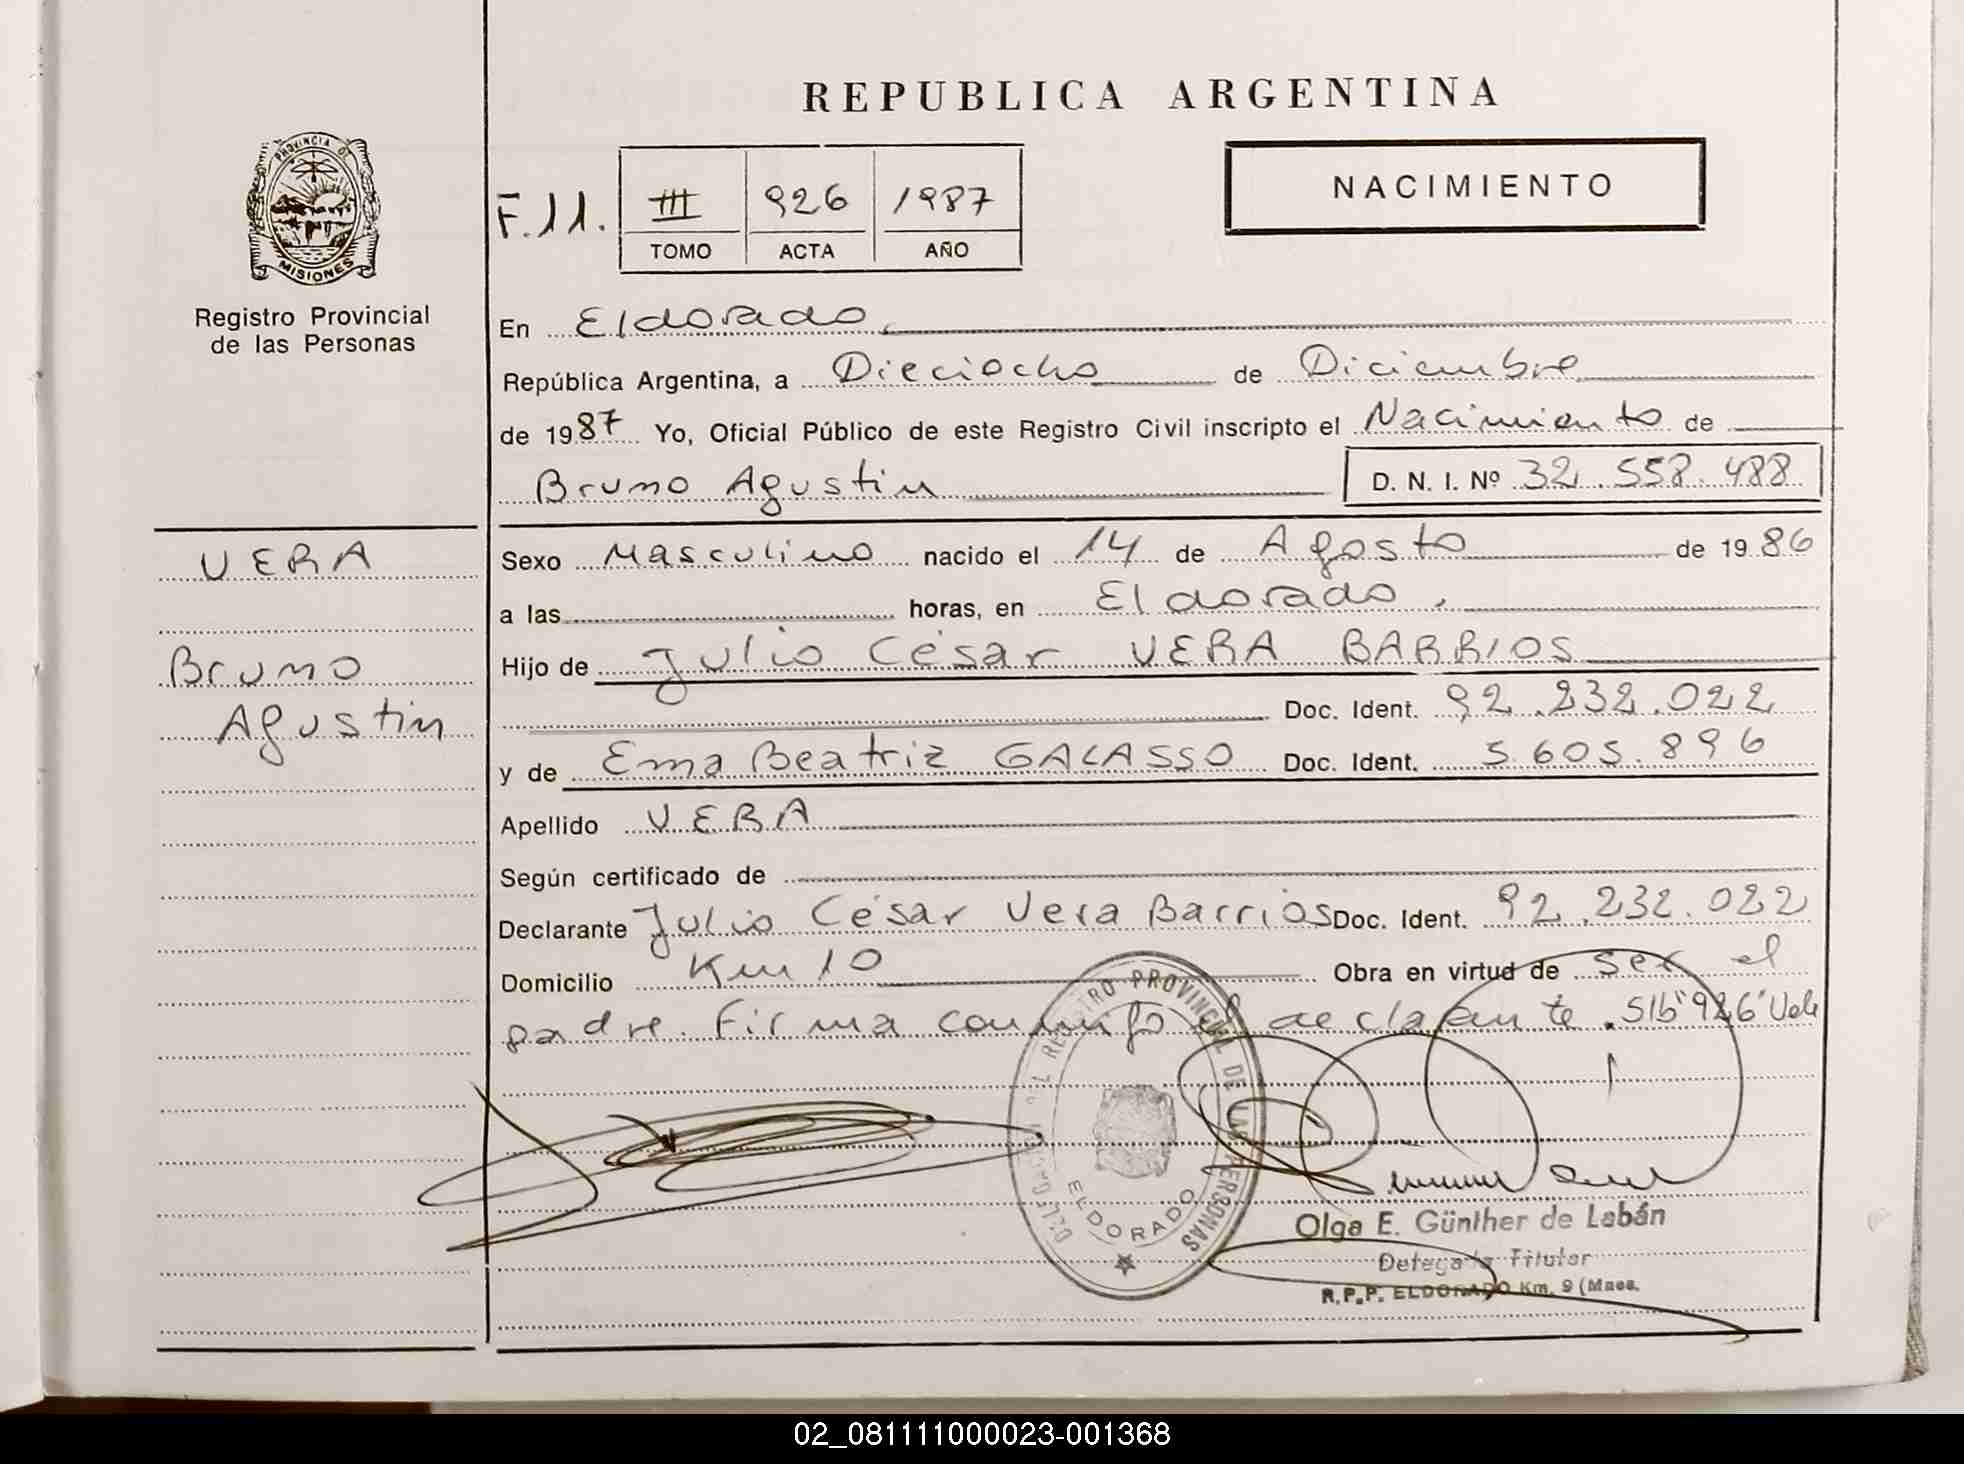 REPUBLICA ARGENTINA
PROVINCIA DE
MISIONES
Registro Provincial
de las Personas
F.11.
III 926 1987
TOMO ACTA AÑO
NACIMIENTO
En Eldorado.
República Argentina, a Dieciocho de Diciembre
de 1987 Yo, Oficial Público de este Registro Civil inscripto el Nacimiento de
Bruno Agustin D. N. I. Nº 32.558.488
VERA
Bruno
Agustin
Sexo Masculino nacido el 14 de Agosto de 1986
a las horas, en Eldorado.
Hijo de Julio César VERA BARRIOS
Doc. Ident. 92.232.022
y de Ema Beatriz GALASSO Doc. Ident. 5.605.896
Apellido VERA
Según certificado de
Declarante Julio César Vera Barrios Doc. Ident. 92.232.022
Domicilio Km 10 Obra en virtud de ser el
padre. Firma conmigo el declarante. S/b "926" Vale
REGISTRO PROVINCIAL DE LAS PERSONAS
ELDORADO
Olga E. Günther de Labán
Delegada Titular
R.P.P. ELDORADO Km. 9 (Mnes.
02_081111000023-001368